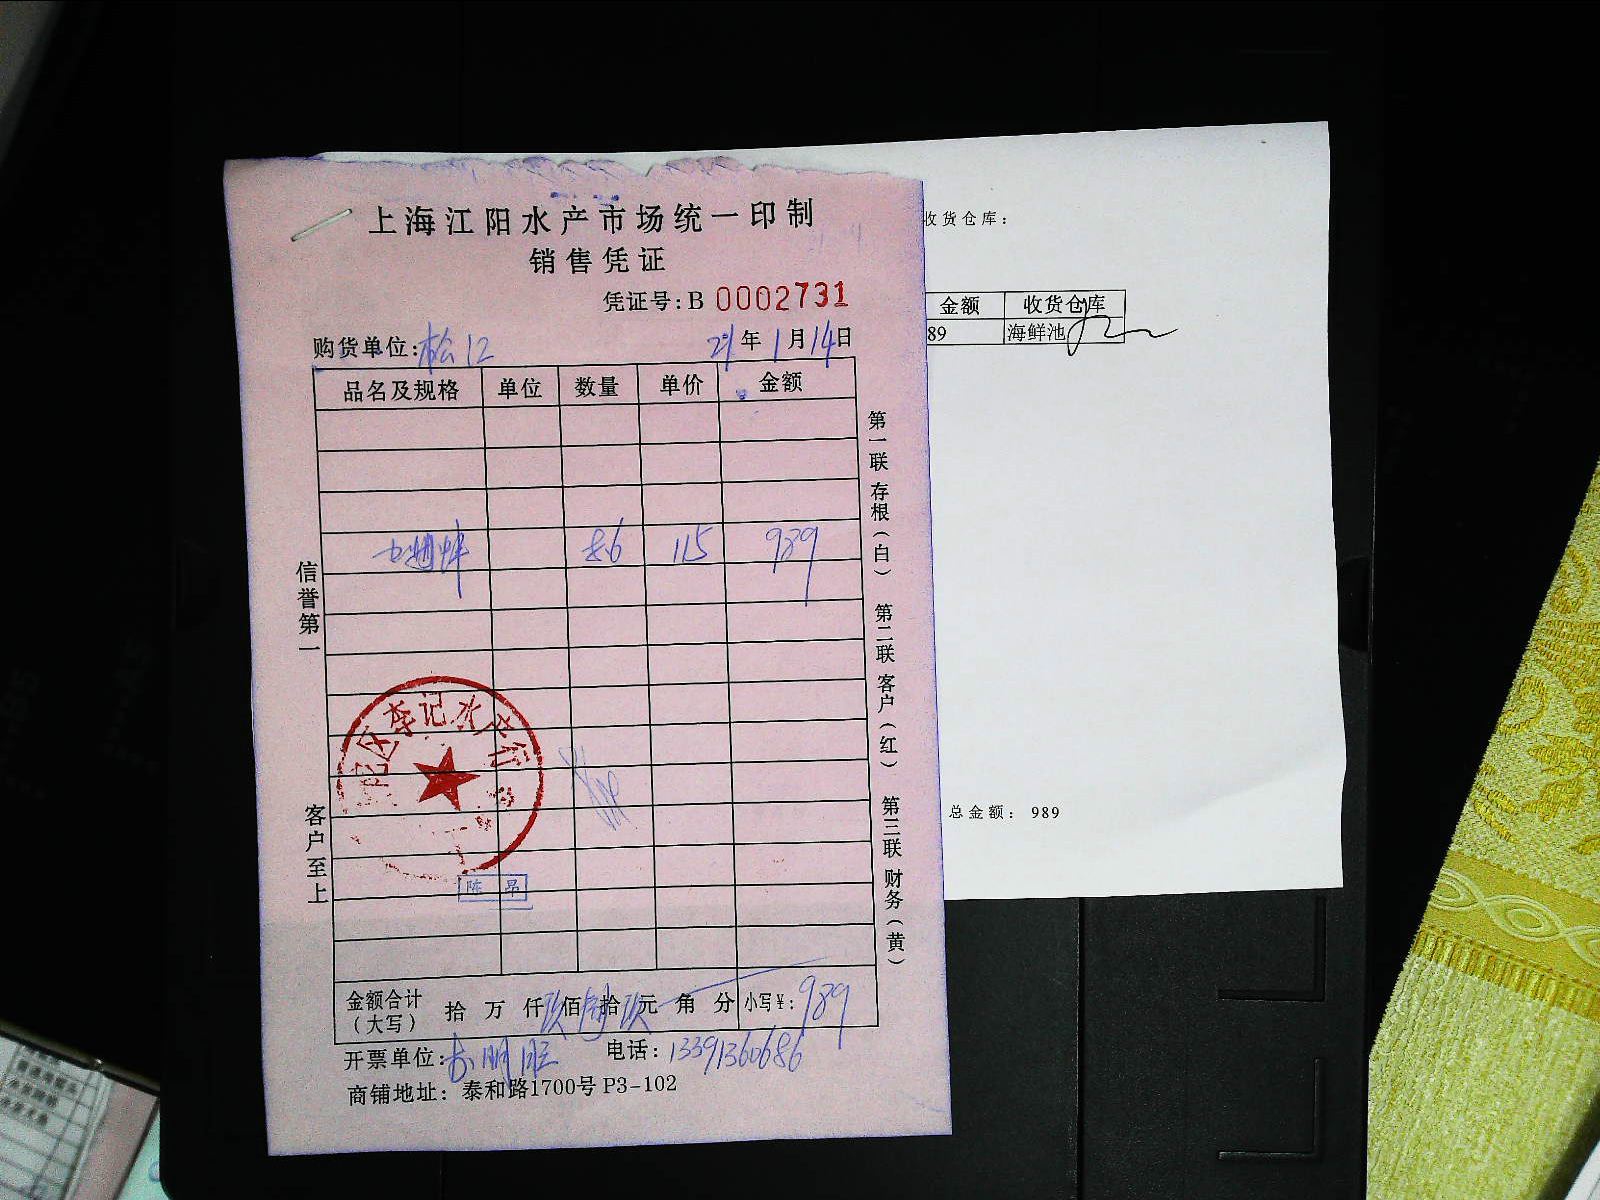 上海江阳水产市场统一印制
销售凭证
凭证号:B 0002731
购货单位:松江 21年1月14日
品名及规格 单位 数量 单价 金额
8.6 115 989
信誉第一
客户至上
第一联 存根(白) 第二联 客户(红) 第三联 财务(黄)
李记水产
陈昂
金额合计(大写) 拾 万 仟 玖佰 捌拾 玖元 角 分 小写¥: 989
开票单位: 电话:13391360686
商铺地址: 泰和路1700号 P3-102
收货仓库:
金额 收货仓库
89 海鲜池
总金额: 989